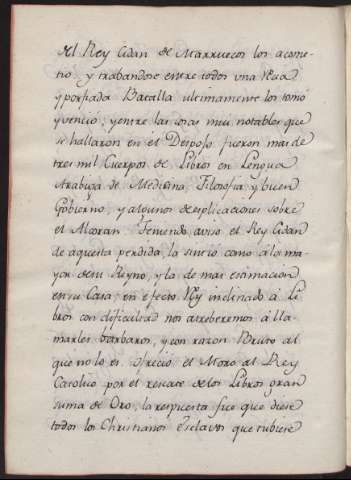 del Rey Cidan de Marruecos los acome-
tio y trabandose entre todos una Viva
y porfiada Batalla ultimamente los tomó
y vencio; y entre las cosas mui notables que
se hallaron en el Despojo fueron mas de
tres mil Cuerpos de Libros en Lengua
Arabiga de Medicina, Filosofia y buen
Gobierno, y algunos de explicaciones sobre
el Alcoran. Teniendo aviso el Rey Cidan
de aquesta perdida, la sintio como à la ma-
yor de su Reyno, y la de mas estimacion
en su Casa, en efecto Rey inclinado à Li
bros con dificultad nos atreberemos à lla-
marles barbaros, y con razon Bruto al
que no lo es. Ofrecio el Moro al Rey
Catolico por el rescate de los Libros gran
suma de Oro; la respuesta fue que diese
todos los Christianos Esclavos que tubiese